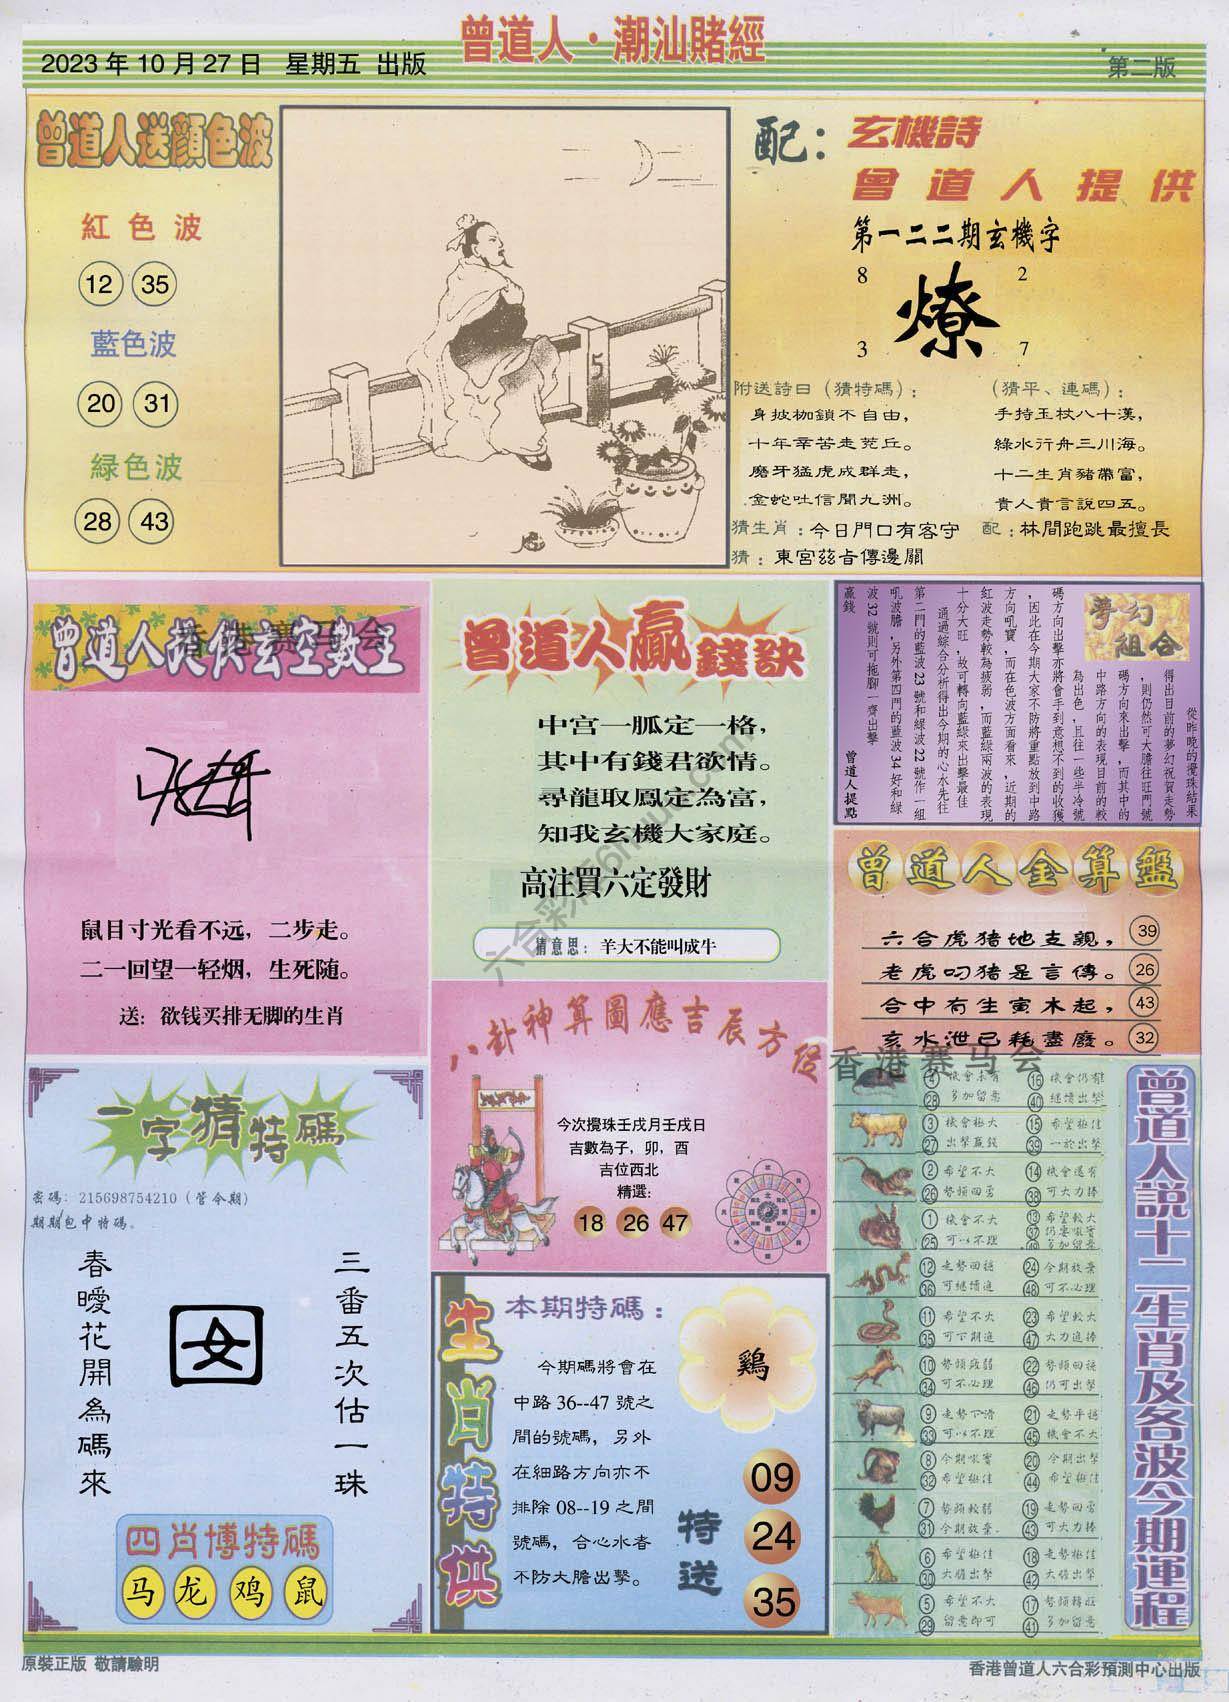 曾道人·潮汕賭經
2023 年 10 月 27 日 星期五 出版
第二版
曾道人送顏色波
紅色波
12 35
藍色波
20 31
緑色波
28 43
5
配：玄機詩
曾道人提供
第一二二期玄機字
8 2
燎
3 7
附送詩曰（猜特碼）：
身披枷鎖不自由，
十年辛苦走荒丘。
磨牙猛虎成群走，
金蛇吐信聞九洲。
（猜平、連碼）：
手持玉杖八十漢，
綠水行舟三川海。
十二生肖豬帶富，
貴人貴言說四五。
猜生肖：今日門口有客守
配：林間跑跳最擅長
猜：東宮茲旨傳邊關
曾道人提供玄空數王
香港赛马会
鼠目寸光看不远，二步走。
二一回望一轻烟，生死随。
送：欲钱买排无脚的生肖
曾道人贏錢訣
中宫一胍定一格，
其中有錢君欲情。
尋龍取鳳定為富，
知我玄機大家庭。
高注買六定發財
猜意思：羊大不能叫成牛
夢幻組合
從昨晚的攪珠結果
得出目前的夢幻祝賀走勢
，則仍然可大膽往旺門號
碼方向來出擊，而其中的
中路方向的表現目前的較
為出色，且往一些半冷號
碼方向出擊亦將會手到意想不到的收獲
，因此在今期大家不防將重點放到中路
方向吼寶，而在色波方面看來，近期的
紅波走勢較為疲弱，而藍綠兩波的表現
十分大旺，故可轉向藍綠來出擊最佳
通過綜合分析得出今期的心水先往
第二門的藍波 23 號和綠波 22 號作一組
吼波膽，另外第四門的藍波 34 好和綠
波 32 號則可拖腳一齊出擊
贏錢
曾道人提點
曾道人金算盤
六合虎猪地支親， 39
老虎叼猪是言傳。 26
合中有生寅木起， 43
亥水泄己耗盡廢。 32
八卦神算圖應吉辰方位
香港赛马会
今次攪珠壬戌月壬戌日
吉數為子，卯，酉
吉位西北
精選：
18 26 47
一字猜特碼
密碼：215698754210（管今期）
期期包中特碼。
三番五次估一珠
囡
春曖花開為碼來
四肖博特碼
马 龙 鸡 鼠
生肖特供
本期特碼：
鷄
今期碼將會在
中路 36--47 號之
間的號碼，另外
在細路方向亦不
排除 08--19 之間
號碼，合心水者
不防大膽出擊。
特送
09
24
35
曾道人說十二生肖及各波今期運程
4 機會未有 16 機會仍有
28 多加留意 40 継續出擊
3 機會極大 15 希望極佳
27 出擊贏錢 39 一於出擊
2 希望不大 14 機會還有
26 勢頭回勇 38 可大力捧
1 機會不大 13 希望較大
25 可以不理 37 仍要吼實
49 多加留意
12 走勢回穩 24 今期放棄
36 可継續追 48 可不必理
11 希望不大 23 希望較大
35 可下期追 47 大力追捧
10 勢頭疲弱 22 勢頭回穩
34 可不必理 46 仍可出擊
9 走勢下滑 21 走勢平穩
33 可以不理 45 機會不大
8 今期吼實 20 今期出擊
32 希望極佳 44 希望極佳
7 勢頭較弱 19 走勢回勇
31 今期放棄. 43 可大力捧
6 希望極佳 18 走勢極佳
30 大膽出擊 42 大膽出擊
5 希望不大 17 勢頭轉旺
29 留意即可 41 多加留意
六合彩 56mu.com
原裝正版 敬請驗明
香港曾道人六合彩預測中心出版